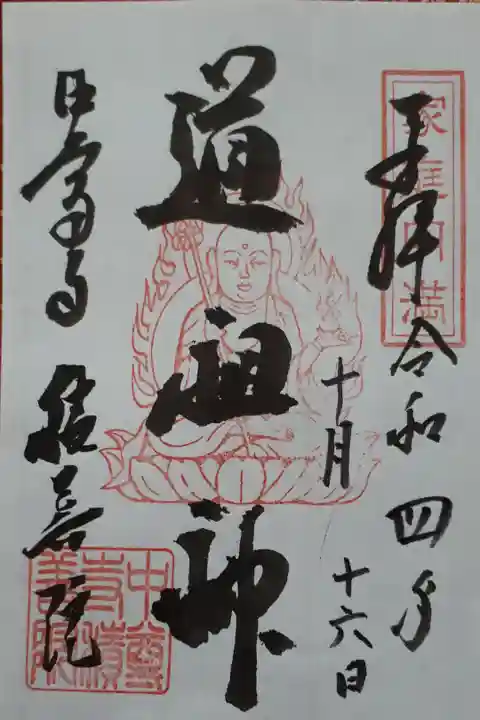 家庭円満
奉拝 令和四年
十月
十六日
道祖神
中尊寺 積善院
中尊
寺積
善院